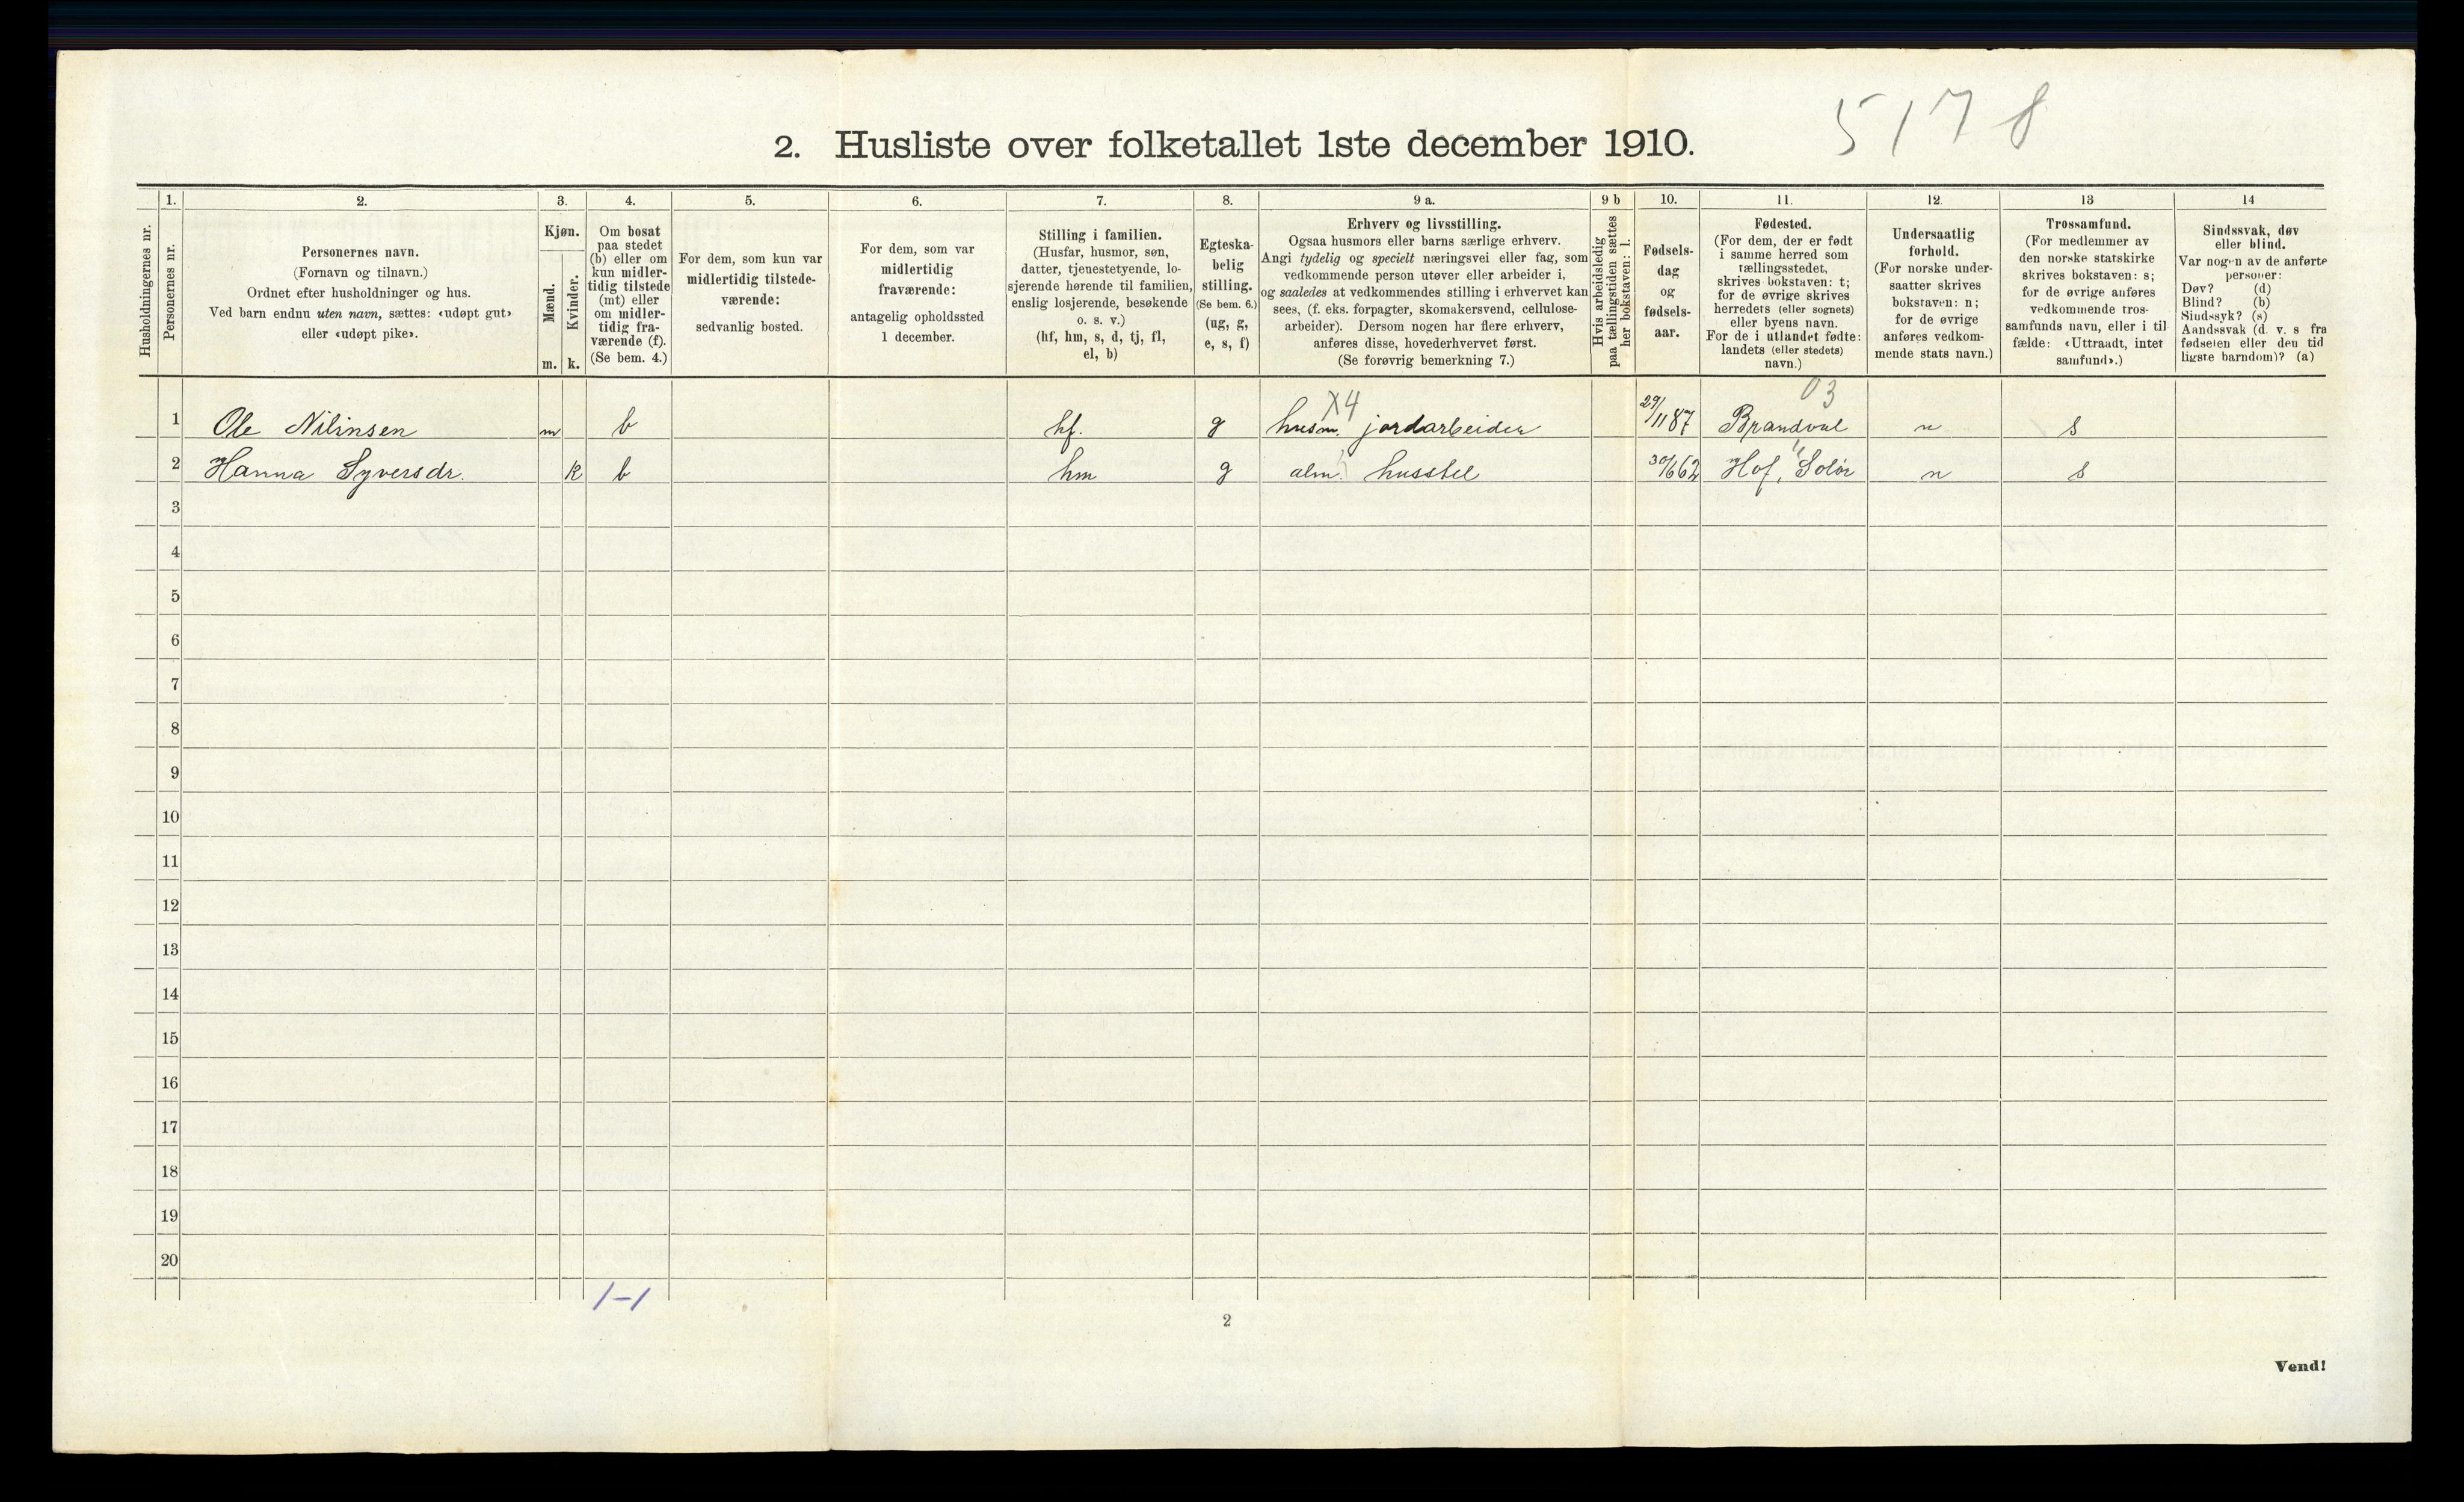 5178
2. Husliste over folketallet 1ste december 1910.
Husholdningernes nr.
1.
Personernes nr.
2.
Personernes navn.
(Fornavn og tilnavn.)
Ordnet efter husholdninger og hus.
Ved barn endnu uten navn, sættes: «udøpt gut»
eller «udøpt pike».
3.
Kjøn.
Mænd.
Kvinder.
m.
k.
4.
Om bosat
paa stedet
(b) eller om
kun midler-
tidig tilstede
(mt) eller
om midler-
tidig fra-
værende (f).
(Se bem. 4.)
5.
For dem, som kun var
midlertidig tilstede-
værende:
sedvanlig bosted.
6.
For dem, som var
midlertidig
fraværende:
antagelig opholdssted
1 december.
7.
Stilling i familien.
(Husfar, husmor, søn,
datter, tjenestetyende, lo-
sjerende hørende til familien,
enslig losjerende, besøkende
o. s. v.)
(hf, hm, s, d, tj, fl,
el, b)
8.
Egteska-
belig
stilling.
(Se bem. 6.)
(ug, g,
e, s, f)
9 a.
Erhverv og livsstilling.
Ogsaa husmors eller barns særlige erhverv.
Angi tydelig og specielt næringsvei eller fag, som
vedkommende person utøver eller arbeider i,
og saaledes at vedkommendes stilling i erhvervet kan
sees, (f. eks. forpagter, skomakersvend, cellulose-
arbeider). Dersom nogen har flere erhverv,
anføres disse, hovederhvervet først.
(Se forøvrig bemerkning 7.)
9 b
Hvis arbeidsledig
paa tællingstiden sættes
her bokstaven: l.
10.
Fødsels-
dag
og
fødsels-
aar.
11.
Fødested.
(For dem, der er født
i samme herred som
tællingsstedet,
skrives bokstaven: t;
for de øvrige skrives
herredets (eller sognets)
eller byens navn.
For de i utlandet fødte:
landets (eller stedets)
navn.)
12.
Undersaatlig
forhold.
(For norske under-
saatter skrives
bokstaven: n;
for de øvrige
anføres vedkom-
mende stats navn.)
13
Trossamfund.
(For medlemmer av
den norske statskirke
skrives bokstaven: s;
for de øvrige anføres
vedkommende tros-
samfunds navn, eller i til-
fælde: «Uttraadt, intet
samfund».)
14
Sindssvak, døv
eller blind.
Var nogen av de anførte
personer:
Døv? (d)
Blind? (b)
Sindssyk? (s)
Aandssvak (d. v. s. fra
fødselen eller den tid-
ligste barndom)? (a)
X4 03
1 Ole Nilinsen m b hf. g husm. jordarbeider 29/11 87 Brandval n s
2 Hanna Syversdr. k b hm g alm. husstel 30/6 62 Hof, Solør n s
3
4
5
6
7
8
9
10
11
12
13
14
15
16
17
18
19
20
1-1
2
Vend!